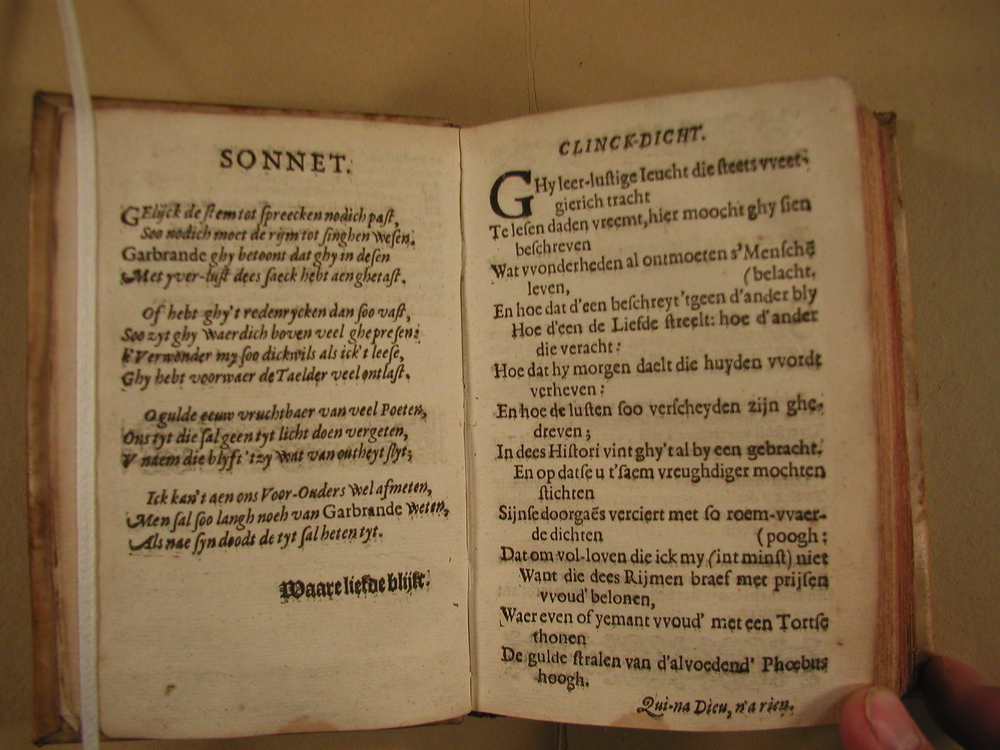 SONNET.
GElijck de stem tot spreecken nodich past,
Soo nodich moet de rijm tot singhen wesen:
Garbrande ghy betoont dat ghy in desen
Met yver-lust dees saeck hebt aenghetast.
Of hebt ghy't redenrycken dan soo vast,
Soo zyt ghy waerdich boven veel ghepresen:
k'Verwonder my soo dickwils als ick't leese,
Ghy hebt voorwaer de Taelder veel ontlast.
O gulde eeuw vruchtbaer van veel Poeten,
Ons tyt die sal geen tyt licht doen vergeten,
V naem die blyft 'tzy wat van outheyt slyt;
Ick kan't aen ons Voor-Ouders wel afmeten,
Men sal soo langh noch van Garbrande weten,
Als nae syn doodt de tyt sal heten tyt.
Waare liefde blijkt.
CLINCK-DICHT.
GHy leer-lustige Ieucht die steets vveet-
gierich tracht
Te lesen daden vreemt, hier moocht ghy sien
beschreven
Wat vvonderheden al ontmoeten s'Menschē
leven, (belacht.
En hoe dat d'een beschreyt 'tgeen d'ander bly
Hoe d'een de Liefde streelt: hoe d'ander
die veracht:
Hoe dat hy morgen daelt die huyden vvordt
verheven:
En hoe de lusten soo verscheyden zijn ghe-
dreven;
In dees Histori vint ghy't al by een gebracht.
En op datse u t'saem vreughdiger mochten
stichten
Sijnse doorgaēs verciert met so roem-vvaer-
de dichten (poogh:
Dat om vol-loven die ick my (int minst) niet
Want die dees Rijmen braef met prijsen
vvoud' belonen,
Waer even of yemant vvoud' met een Tortse
thonen
De gulde stralen van d'alvoedend' Phœbus
hoogh.
Qui-na Dieu, n'a rien.